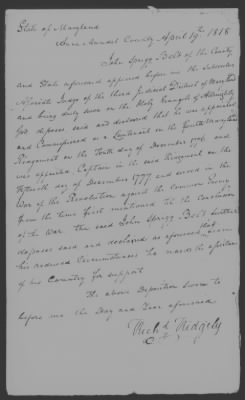 State of Maryland
Ann Arundel County April 19th. 1818
John Sprigg Belt of the County
and State aforesaid appeared before me the Subscriber
Associate Judge of the third Judicial District of Maryland
and being duly sworn on the Holy Evangels of Allmighty
God deposes said and declared that he was appointed
and Commissioned as a Lieutenant in the fourth Maryland
Regement on the Tenth day of December 1776 and
was appointed Captain in the said Regement on the
fifteenth day of December 1777 and served in the
War of the Revolution against the Common Enemy
from the time first mentioned till the Conclusion
of the War the said John Sprigg Belt further
deposes said and declared as aforesaid that from
his reduced Circumstances he needs the assistance
of his Country for support
The above Deposition sworn to
before me the Day and Year aforesaid
Richd Ridgely